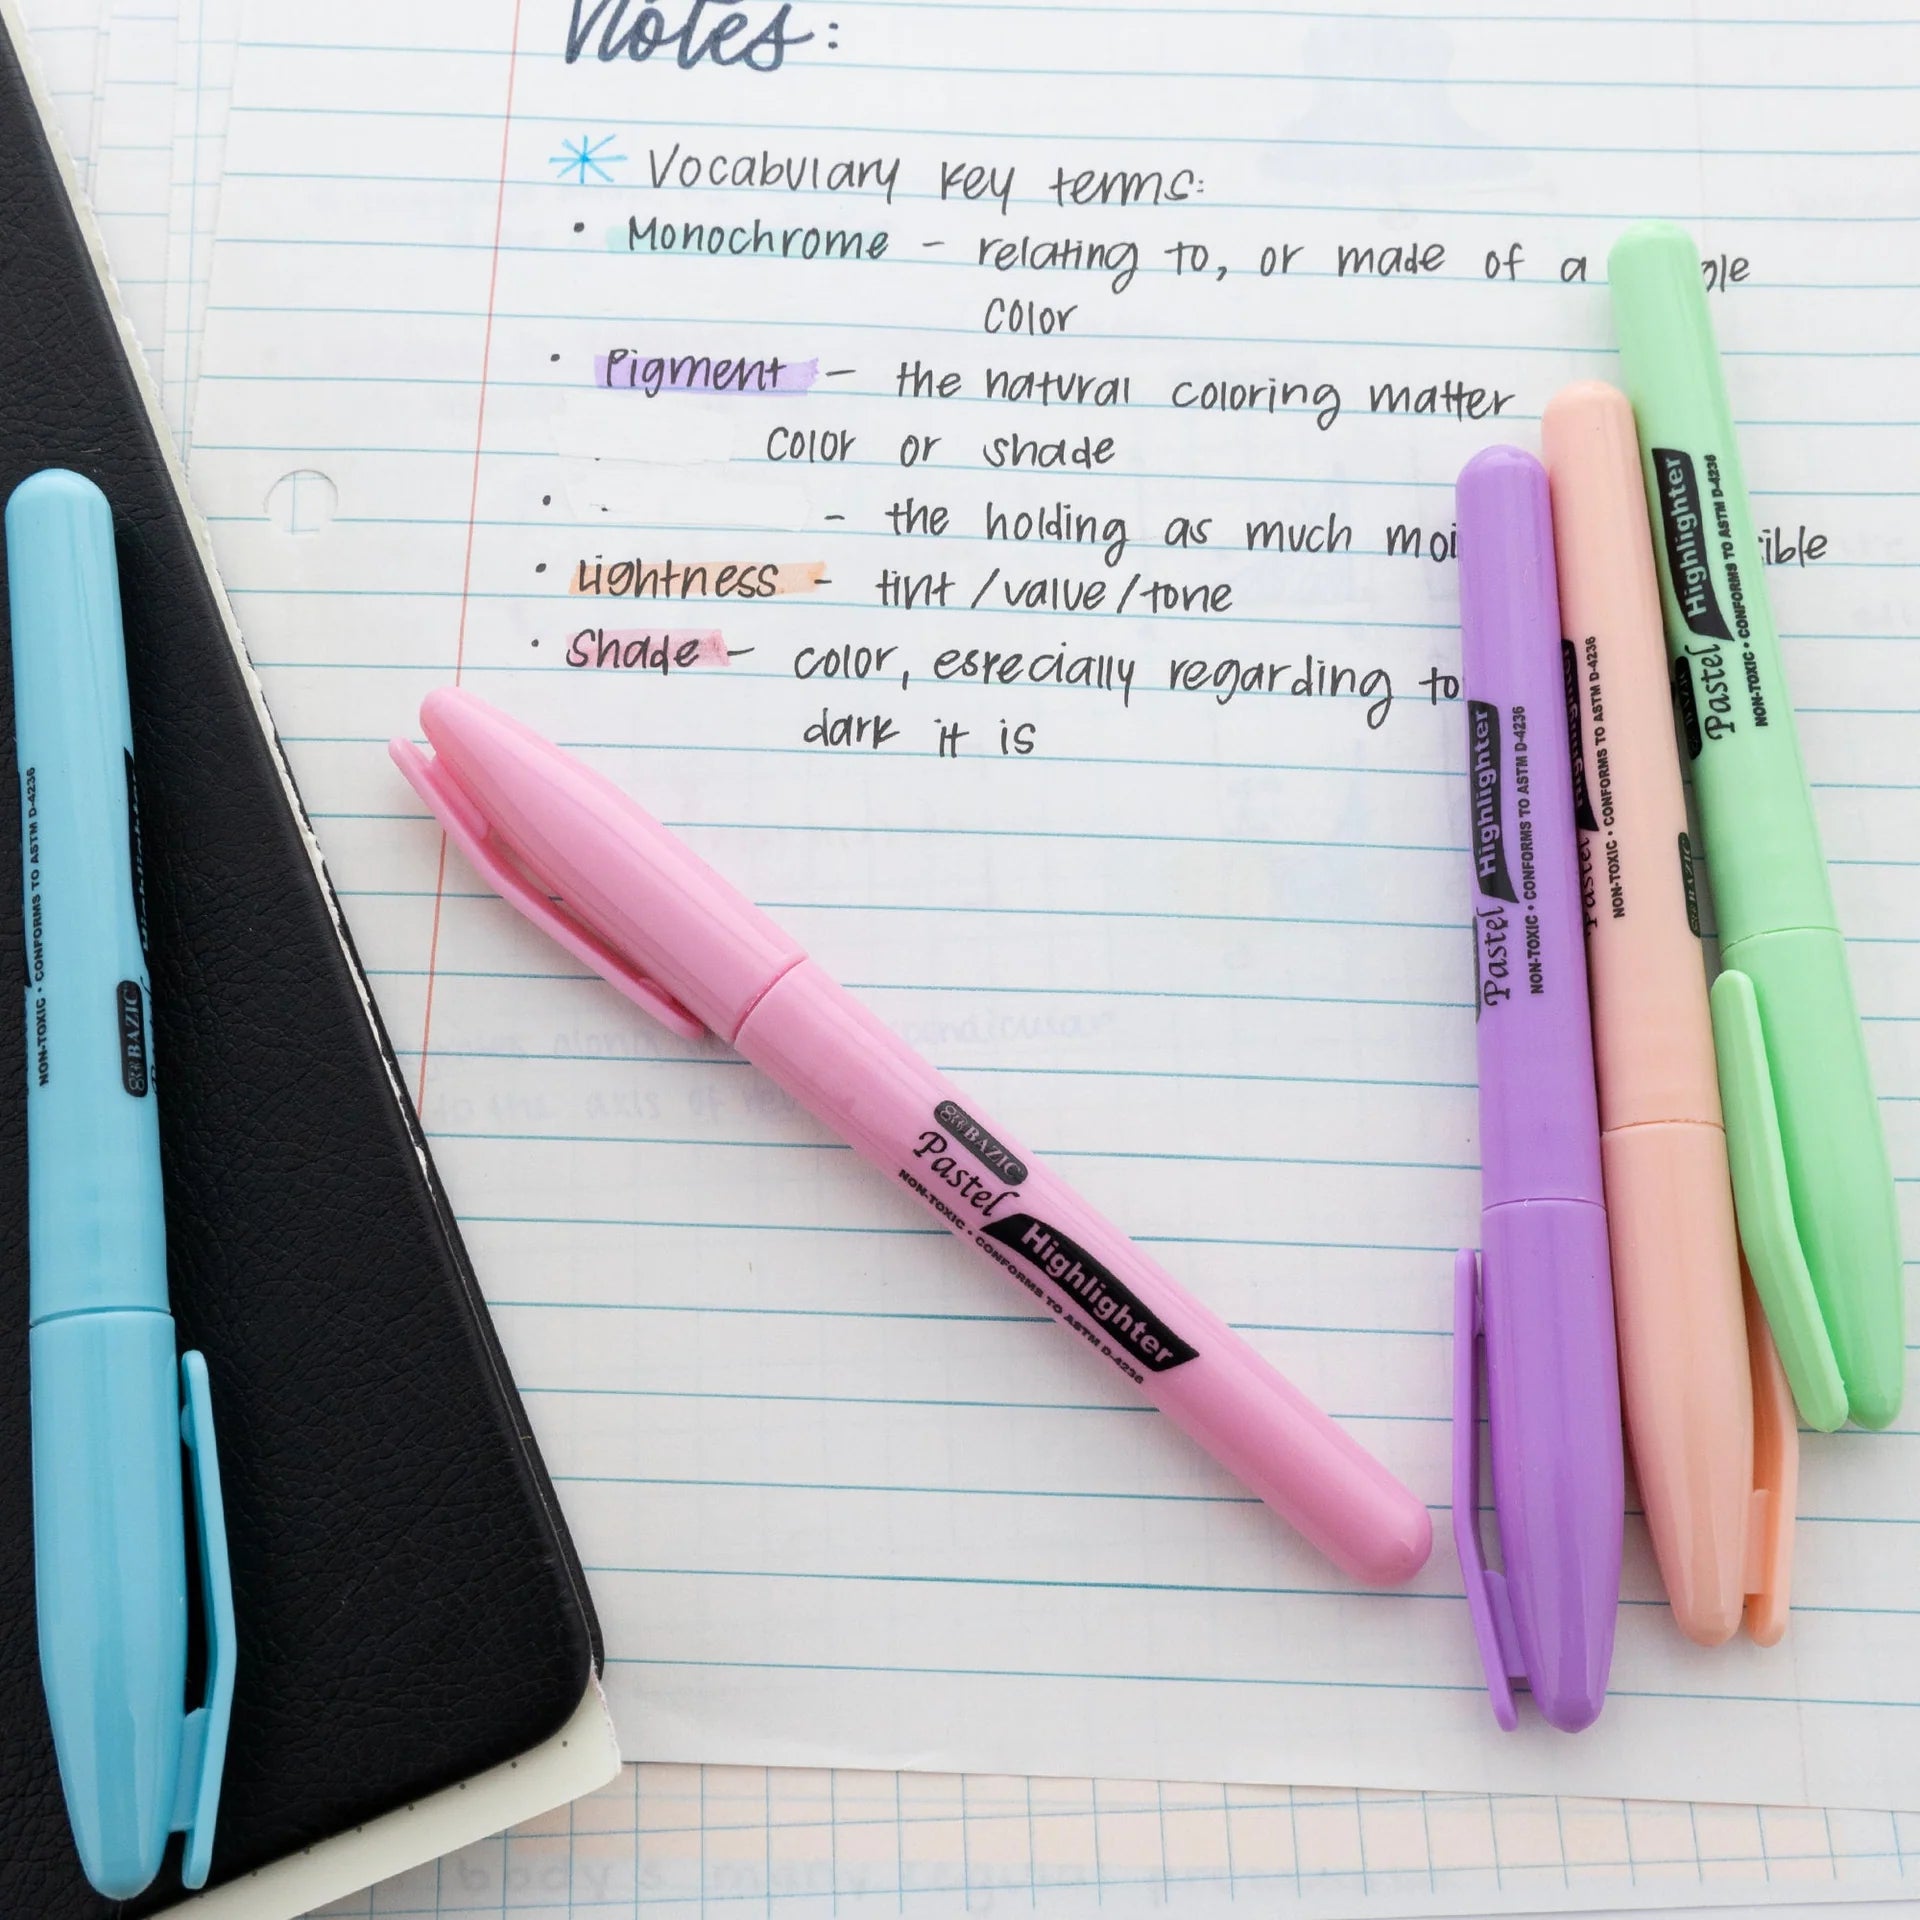 Notes:
Vocabulary key terms:
• Monochrome - relating to, or made of a
color
• Pigment - the natural coloring matter
color or shade
• - the holding as much
• Lightness - tint / value / tone
• Shade - color, especially regarding to
dark it is
NON-TOXIC • CONFORMS TO ASTM D-4236
BAZIC
BAZIC
Pastel Highlighter
NON-TOXIC • CONFORMS TO ASTM D-4236
Pastel Highlighter
NON-TOXIC • CONFORMS TO ASTM D-4236
Pastel
NON-TOXIC • CONFORMS TO ASTM D-4236
BAZIC
Pastel Highlighter
NON-TOXIC • CONFORMS TO ASTM D-4236